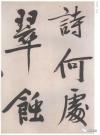 詩何處
翠蝕